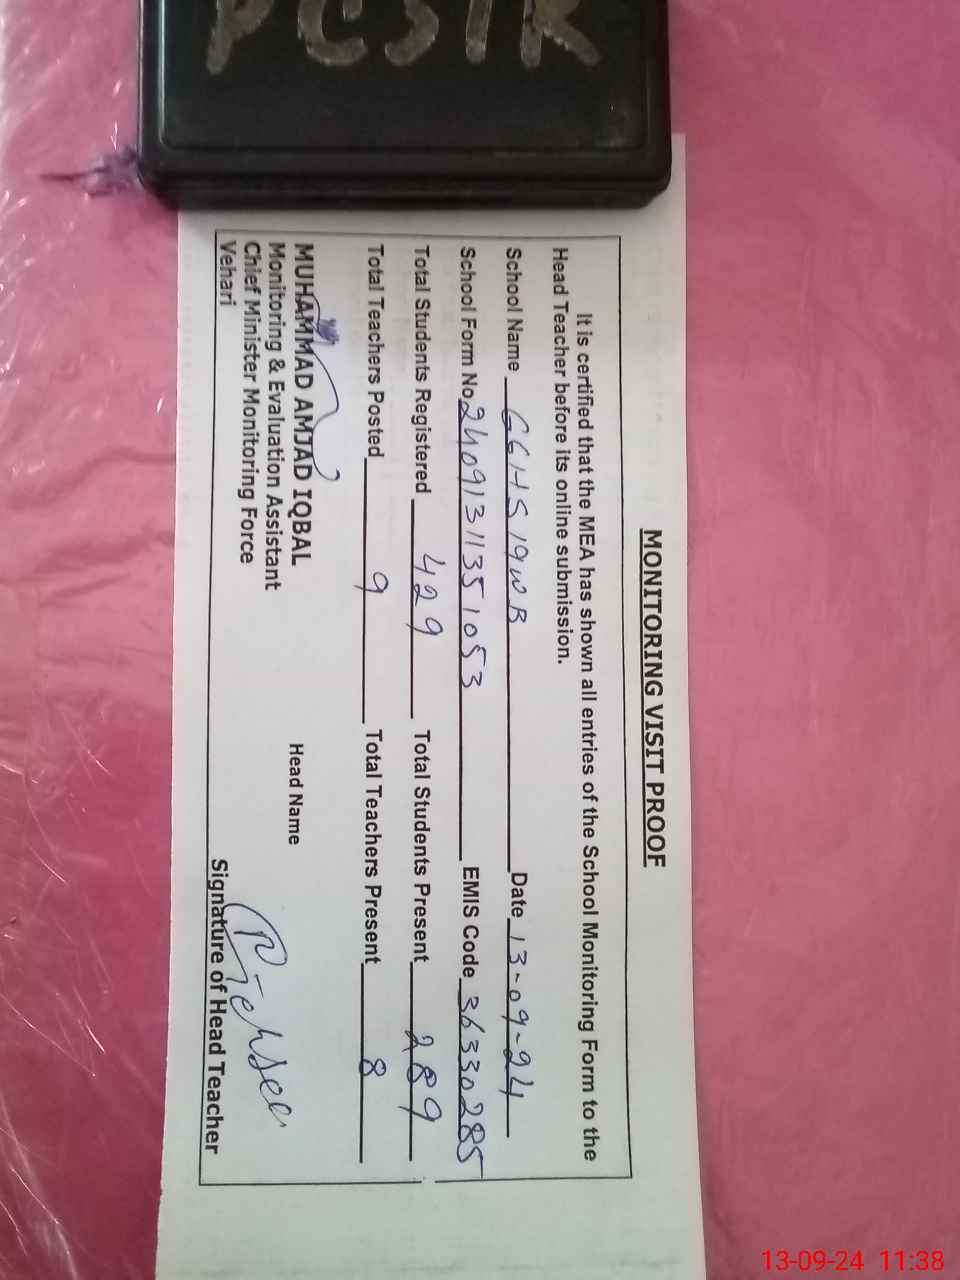 PCSIR
MONITORING VISIT PROOF
It is certified that the MEA has shown all entries of the School Monitoring Form to the
Head Teacher before its online submission.
School Name GGHS 19WB Date 13-09-24
School Form No 24091311351053 EMIS Code 36330285
Total Students Registered 429 Total Students Present 289
Total Teachers Posted 9 Total Teachers Present 8
MUHAMMAD AMJAD IQBAL
Monitoring & Evaluation Assistant
Chief Minister Monitoring Force
Vehari
Head Name
Signature of Head Teacher
13-09-24 11:38